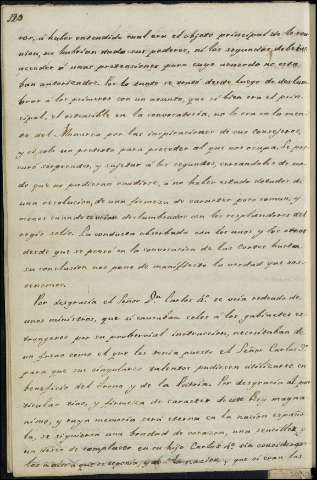 ror, á haber entendido cual era el objeto principal de la reu-
nion, no habrian dado sus poderes, ni los segundos, debido
acceder á unas pretensiones para cuyo acuerdo no esta-
ban autorizados. Por lo tanto se trató desde luego de deslum-
brar á los primeros con un asunto, que si bien era el prin-
cipal, el ostensible en la convocatoria, no lo era en la men-
te del Monarca por las inspiraciones de sus consejeros,
y sí solo un pretesto para proceder al que nos ocupa. Se pro-
curó sorprender, y sujetar á los segundos, cercandoles de mo-
do que no pudieran evadirse, á no haber estado dotados de
una resolucion, de una firmeza de caracter poco comun, y
menos cuando deslumbrados con los resplandores del
regio solio. La conducta observada con los unos y los otros
desde que se pensó en la convocacion de las Cortes hasta
su conclusion nos pone de manifiesto la verdad que sos-
tenemos.
Por desgracia el Señor Dn. Carlos 4º se veia rodeado de
unos ministros, que si causaban celos á los gabinetes es-
trangeros por su proberbial instruccion, necesitaban de
un freno como el que les tenia puesto el Señor Carlos 3º
para que sus singulares talentos pudiesen utilizarse en
beneficio del trono y de la Patria. Por desgracia al par-
ticular tino, y firmeza de caracter de este Rey magna-
nimo, y cuya memoria será eterna en la nacion españo-
la, se siguieron una bondad de corazon, una sencillez y
un deseo de complacer en su hijo Carlos 4º sin considerar
los males á que se esponia, y á la nacion, y que si eran las